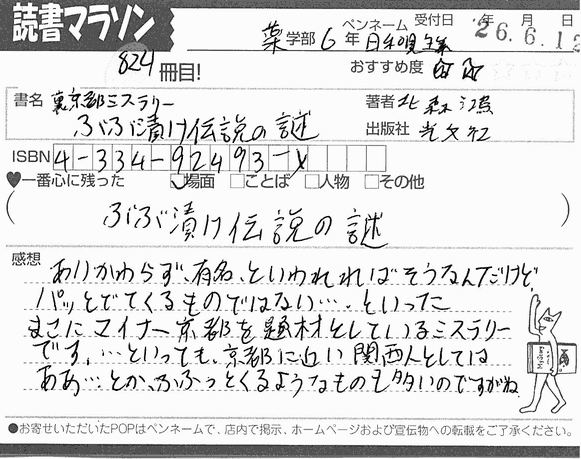 読書マラソン
824冊目!
薬学部 6年
ペンネーム
受付日 年 月 日
26.6.12
おすすめ度
書名 裏京都ミステリー
ぶぶ漬け伝説の謎
著者 北森鴻
出版社 光文社
ISBN 4-334-92493-X
♥一番心に残った □場面 □ことば □人物 □その他
(ぶぶ漬け伝説の謎)
感想
あいかわらず、有名、といわれればそうなんだけど
パッとでてくるものではない…。といった
まさにマイナー京都を題材としているミステリー
です。…といっても、京都に近い関西人としては
ああ…とか、ふふっとくるようなものも多いのですがね
●お寄せいただいたPOPはペンネームで、店内で掲示、ホームページおよび宣伝物への転載をご了承ください。